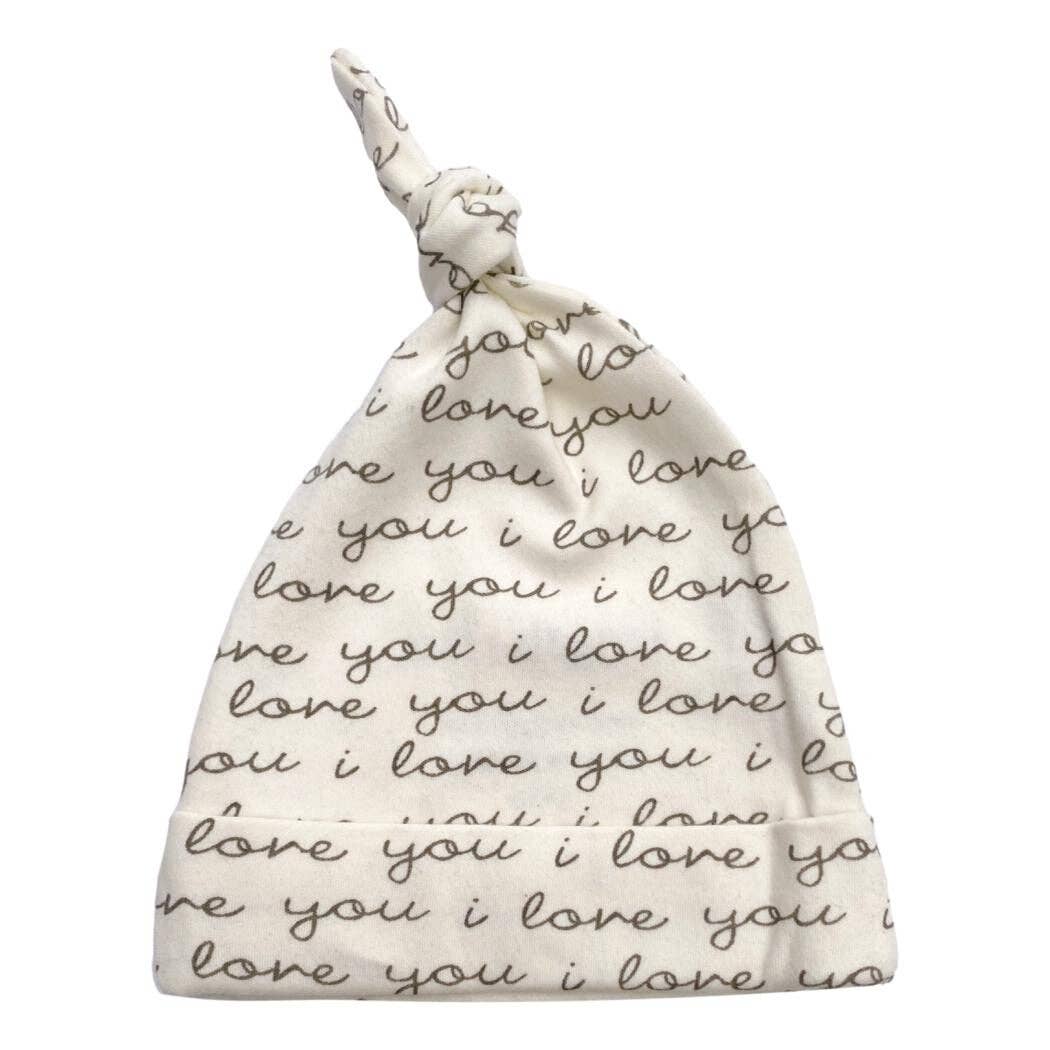 you
lo
i love you
you i love
you i love
love you i love
you i love
love you i love
you i love you i
love you i love
love you i love
you i love you i
love you i love